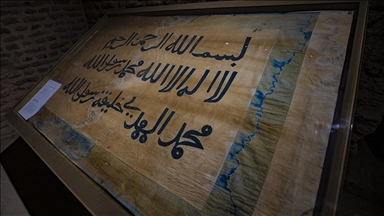 بسم الله الرحمن الرحيم
لا اله الا الله محمد رسول الله
محمد المهدي خليفة رسول الله